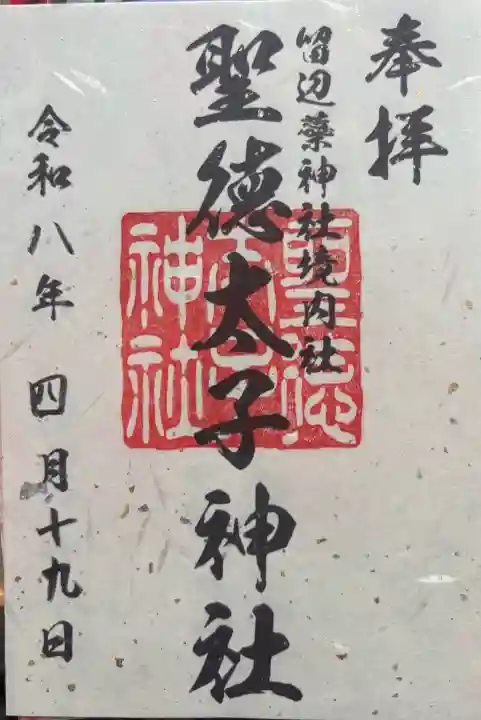 奉拝
留辺蘂神社境内社
聖徳太子神社
令和八年 四月十九日
聖徳
太子
神社